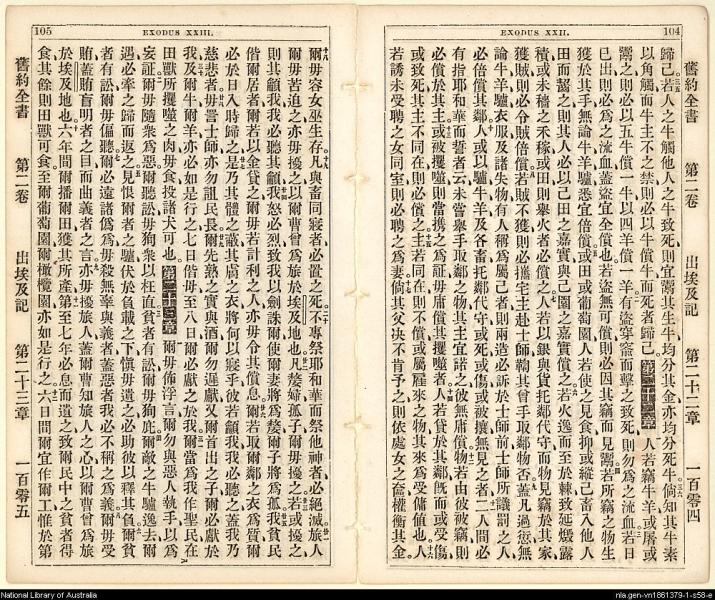 104
EXODUS XXII.
舊約全書 第二卷 出埃及記 第二十二章 一百零四
歸己若人之牛觸他人之牛致死則宜鬻其生牛均分其金亦均分死牛倘知其牛素
以角觸而牛主不之禁則必以牛償牛而死者歸己第二十二章人若竊牛羊或屠或
鬻之則必以五牛償一牛以四羊償一羊有盜穿窬而擊之致死則勿為之流血若日
已出則必為之流血蓋盜宜全償也若盜無可償則必因其竊而見鬻若所竊之物生
獲於其手無論牛羊驢悉宜倍償或田或葡萄園人若使之見食抑或縱己畜入他人
田而嚙之則其人必以己田之嘉實與己園之嘉實償之若火逸而至於棘致延燬露
積或未穡之禾稼或田則舉火者必償之人若以銀與貨托鄰代守而物見竊於其家
獲賊則必令賊倍償若賊不獲則必攜宅主赴士師鞫其曾手取鄰物否蓋凡過愆無
論牛羊驢衣服及諸失物有人稱為屬己者則兩造必訴於士師前士師所議罰之人
必倍償其鄰人或以驢牛羊及各畜托鄰代守或死或傷或被攘無見之者二人間必
有指耶和華而誓者云未嘗舉手取鄰之物其主宜諾之彼無庸償物若由彼被竊則
必償於其主或被攫噬則當攜之為証毋庸償其攫噬者人若貸於其鄰既而或受傷
或致死其主不同在則必償之主若同在則不償或屬雇來之物其來為受傭值也人
若誘未受聘之女同室則必聘之為妻倘其父決不肯予之則依處女之奩權衡其金
105
EXODUS XXIII.
爾毋容女巫生存凡與畜同寢者必置之死不專祭耶和華而祭他神者必絕滅旅人
爾毋苦迫之亦毋擾之以爾曹曾為旅於埃及地也凡嫠婦孤子爾毋擾之若或擾之
則其籲我我必聽其籲我怒必烈致我以劍誅爾使爾妻將為嫠爾子將為孤我貧民
偕爾居者爾若以金貸之爾毋若計利之人亦毋令其償息爾若取爾鄰之衣為質爾
必於日入時歸之是乃其體之蔽其膚之衣將何以寢乎彼若籲我我必聽之蓋我乃
慈悲者也毋詈士師亦勿詛民長爾先熟之實與酒爾勿遲獻又爾首出之子爾必獻於
我及爾牛爾羊亦必如是行之七日偕母至八日爾必獻之於我爾當為我作聖民在
田獸所攫噬之肉毋食投諸犬可也第二十三章爾毋佈浮言爾勿與惡人執手以為
妄証爾毋隨衆為惡爾聽訟毋狥衆以枉直貧者有訟爾毋狥庇爾敵之牛驢逸去爾
遇必牽之歸而返之見恨爾者之驢伏於負載之下愼毋遺之必助彼以釋其負爾貧
者有訟爾毋偏聽爾必遠諸僞為毋殺無辜與義者蓋惡者我必不稱之為義爾毋受
賄蓋賄盲明者之目而曲義者之言亦毋擾旅人蓋爾曹知旅人之心以爾曹曾為旅
於埃及地也六年間爾播爾田獲其所產第至七年必息而遺之致爾民中之貧者得
食其餘則田獸可食至爾葡萄園爾橄欖園亦如是行之六日間爾宜作爾工惟於第
舊約全書 第二卷 出埃及記 第二十三章 一百零五
National Library of Australia
nla.gen-vn1861379-1-s58-e